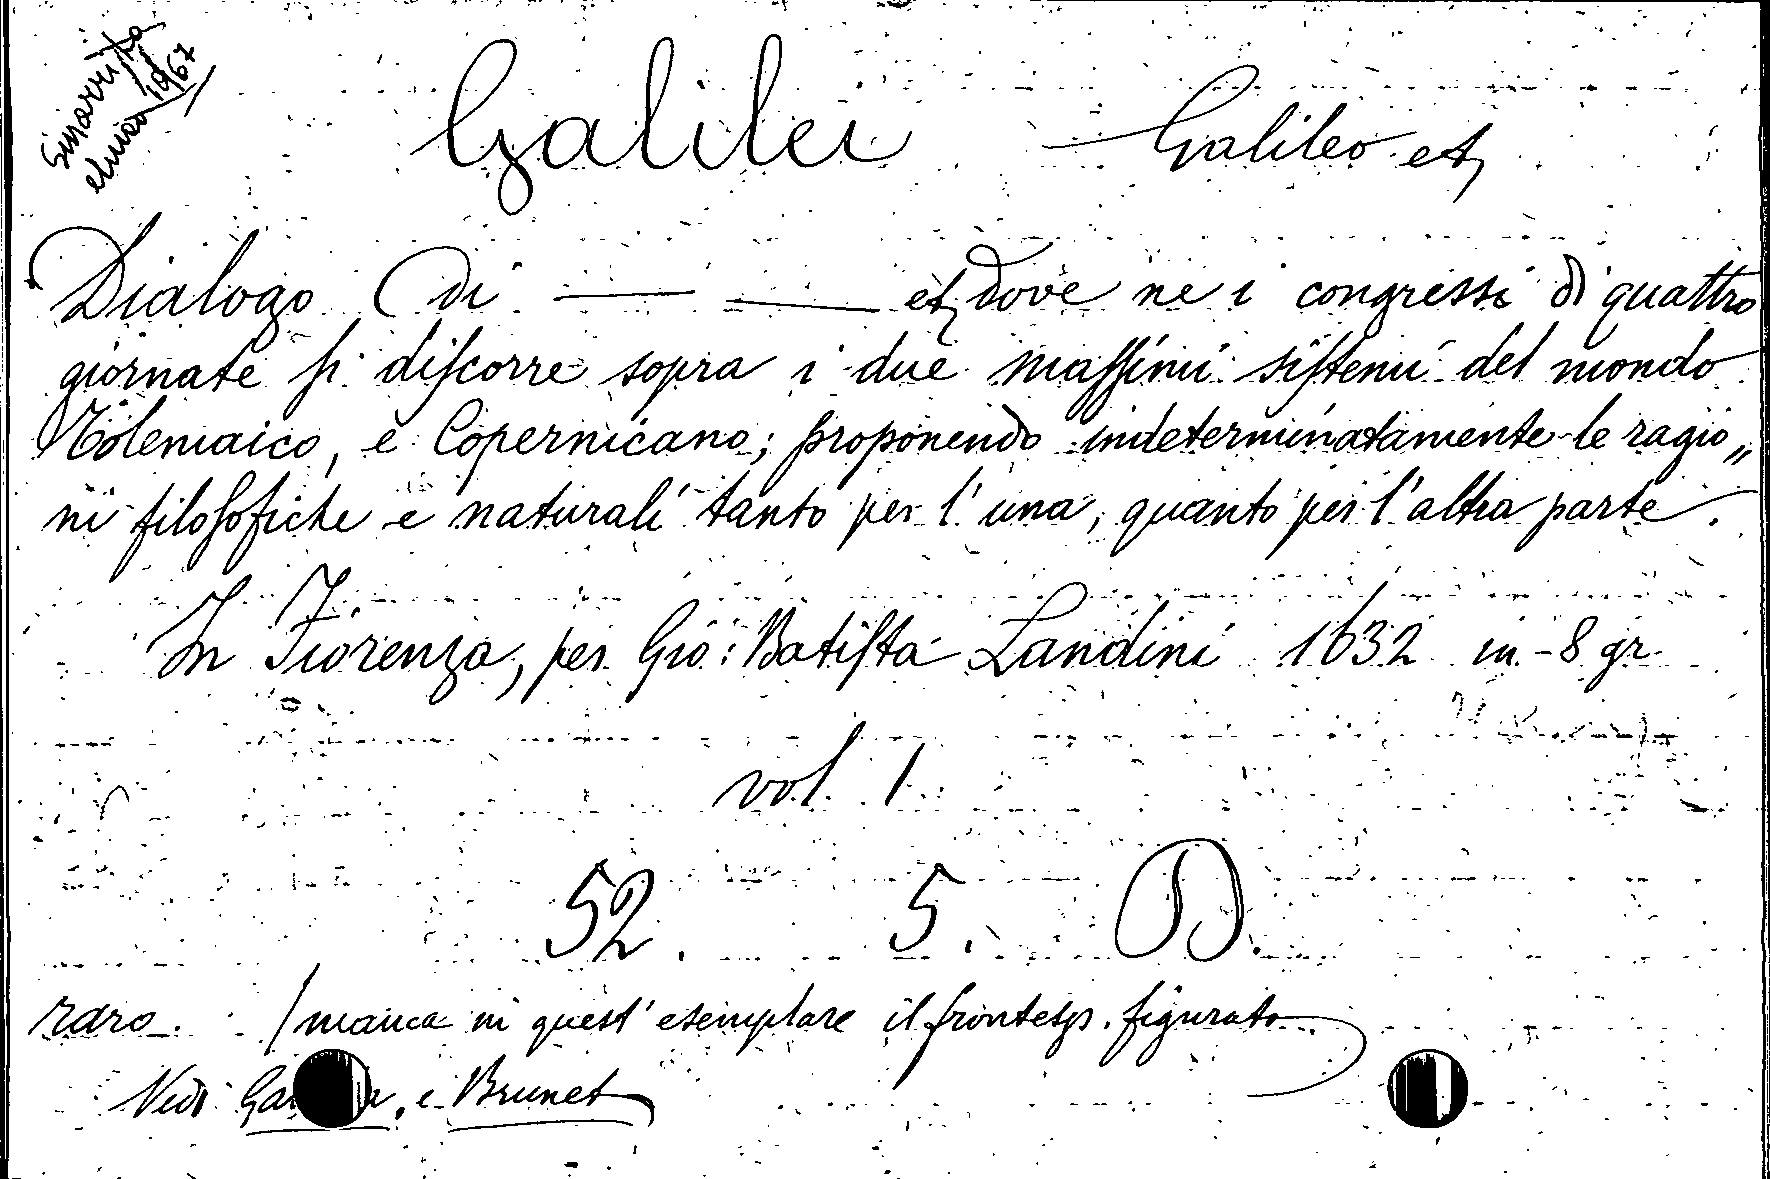 Smarrita
elenco 1967
Galilei Galileo etc
Dialogo (di — — etc dove ne i congressi di quattro
giornate si discorre sopra i due massimi sistemi del mondo
Tolemaico, e Copernicano; proponendo indeterminatamente le ragio„
ni filosofiche e naturali tanto per l'una, quanto per l'altra parte.
In Fiorenza, per Gio: Batista Landini 1632 in-8 gr
vol. 1
52. 5. D.
raro. (manca in quest'esemplare il frontesp. figurato
Vedi , e Brunet